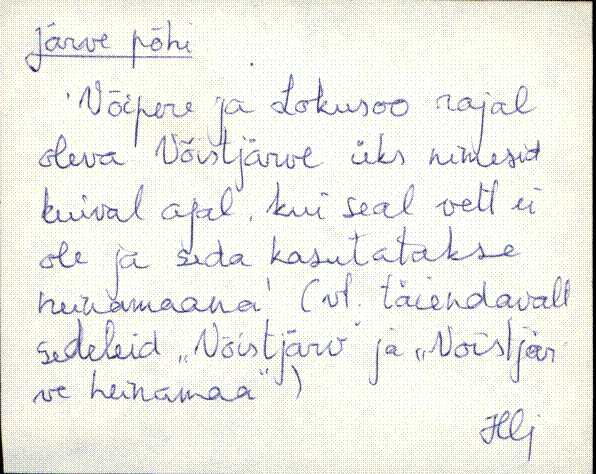 järve põhi
'Võipere ja Lokusoo rajal
oleva Võistjärve üks nimesid
kuival ajal, kui seal vett ei
ole ja seda kasutatakse
heinamaana' (vt. täiendavalt
sedeleid „Võistjärv" ja „Võistjär-
ve heinamaa")